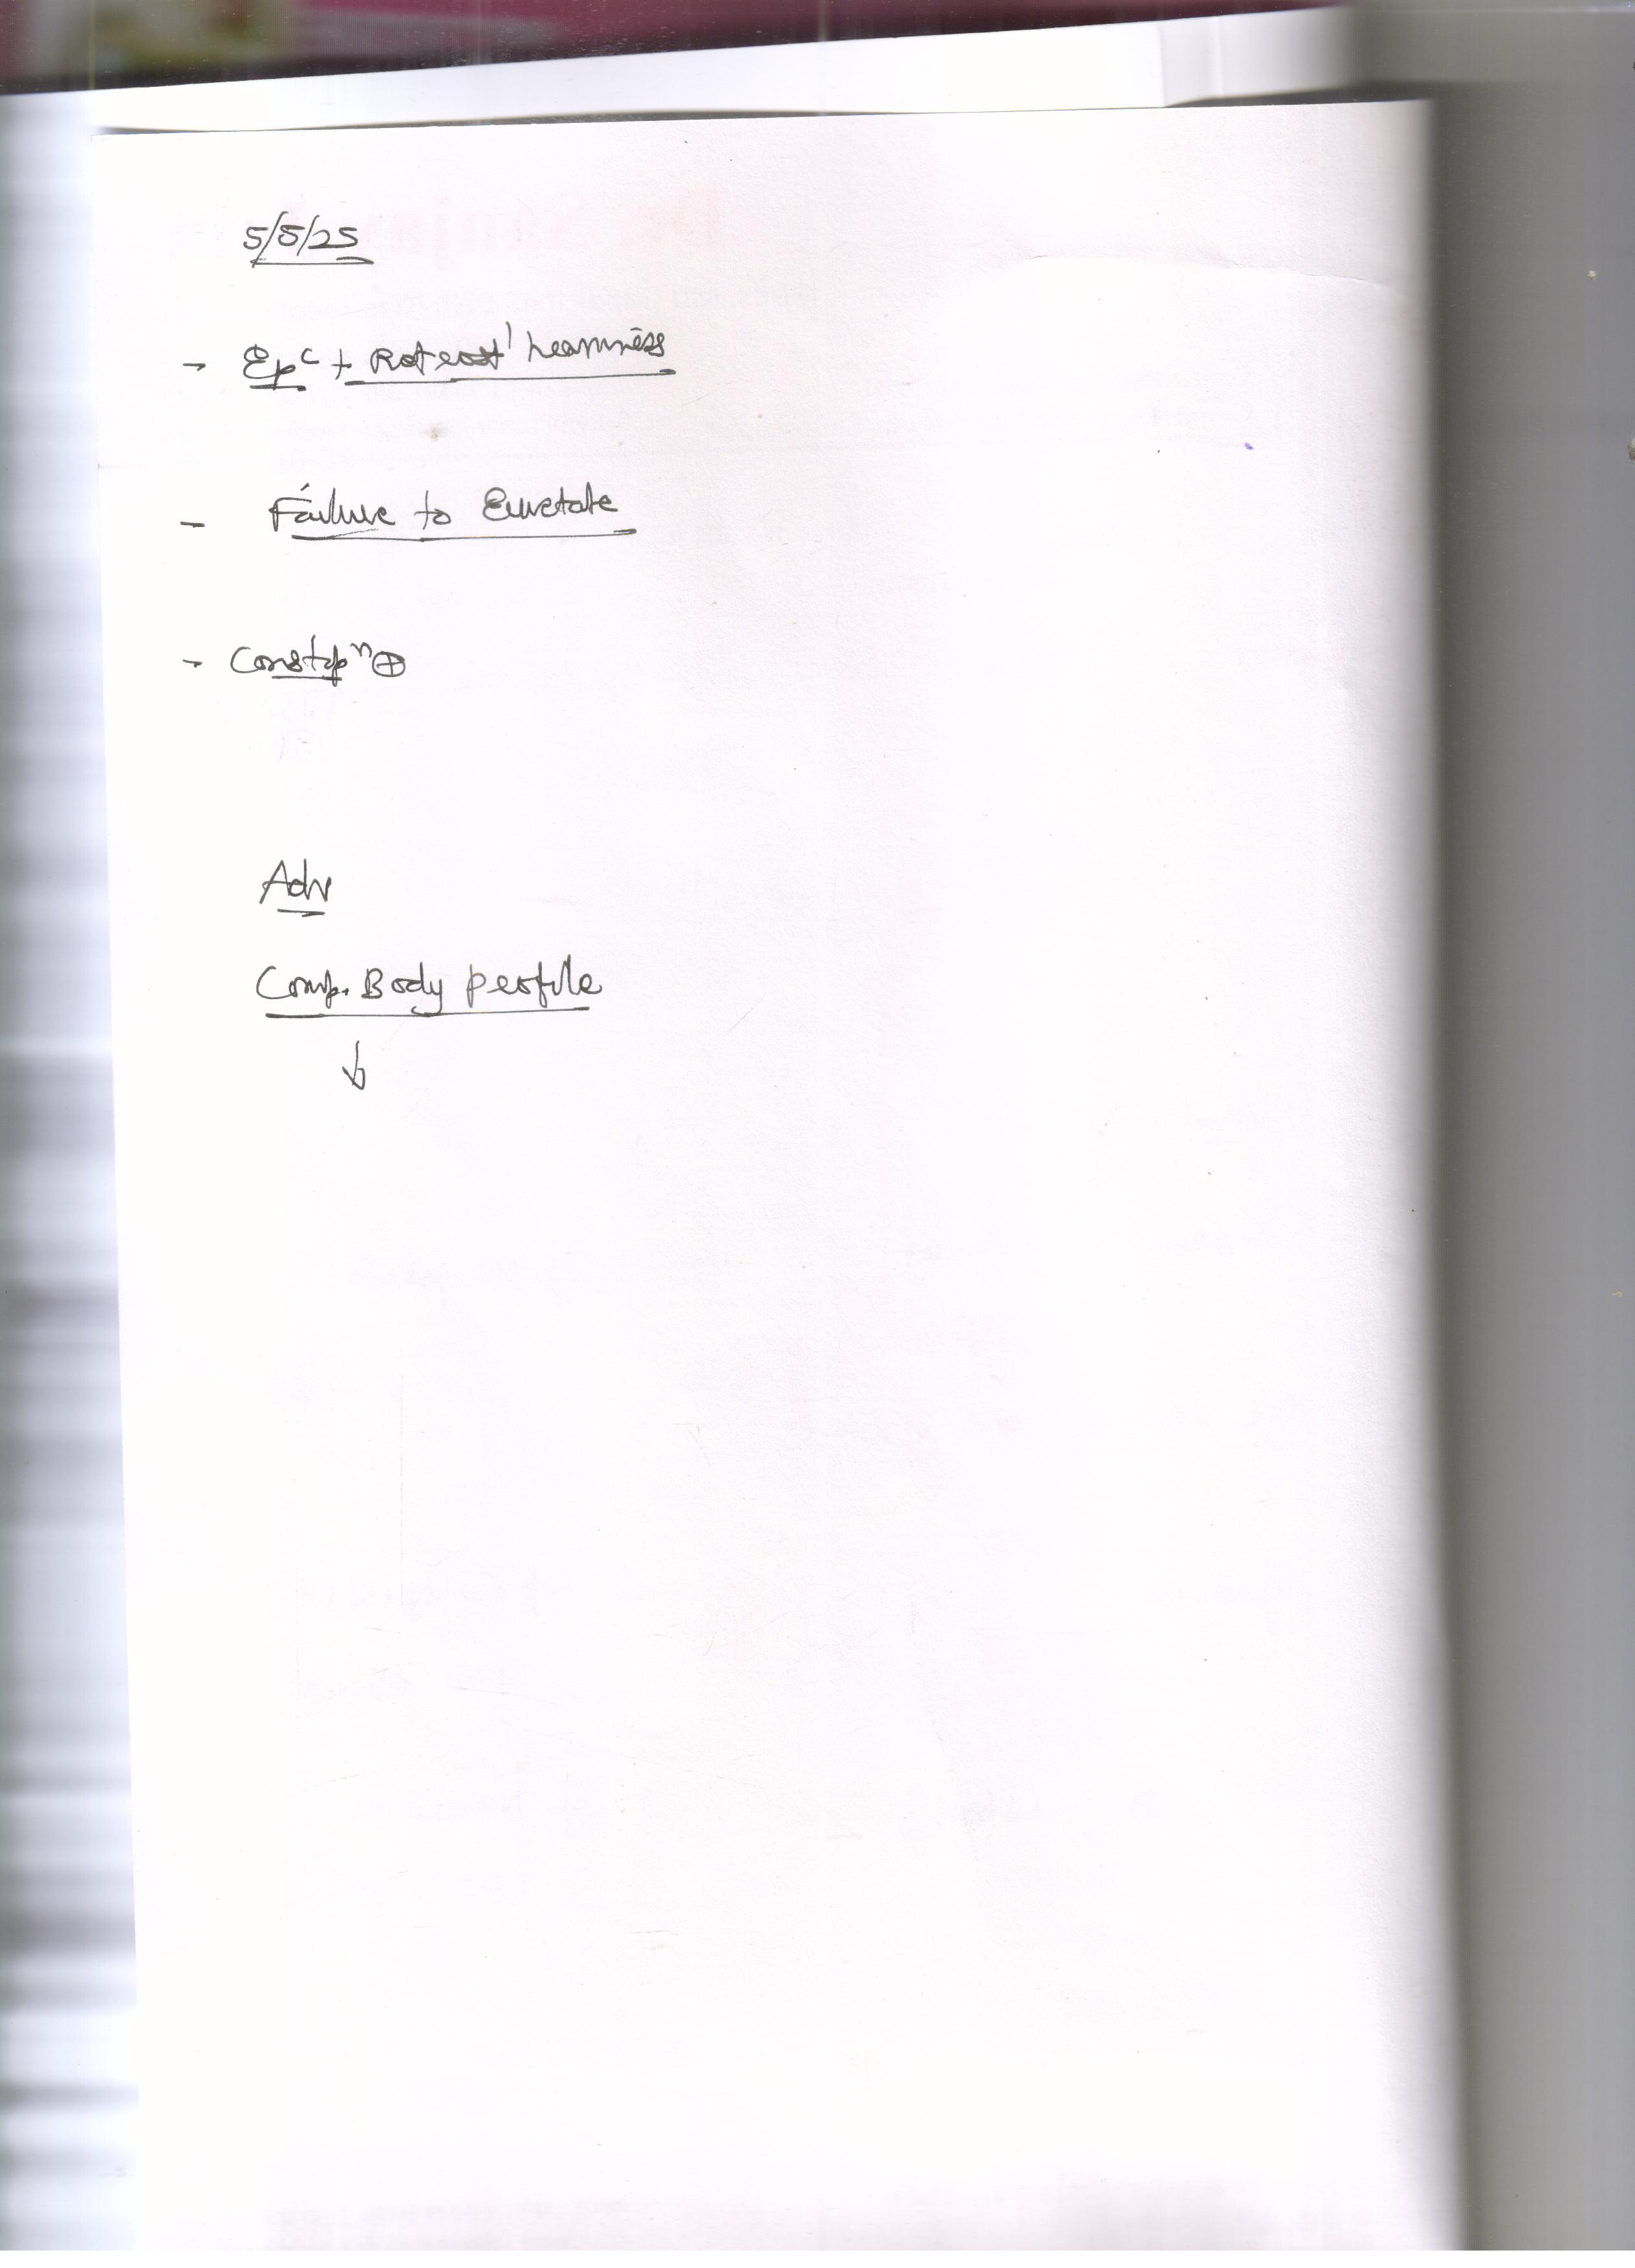 5/5/25
- Epc + Rotrost' heaviness
- Failure to Eurctate
- Constpn ⊕
Adv
Comp. Body profile
↓